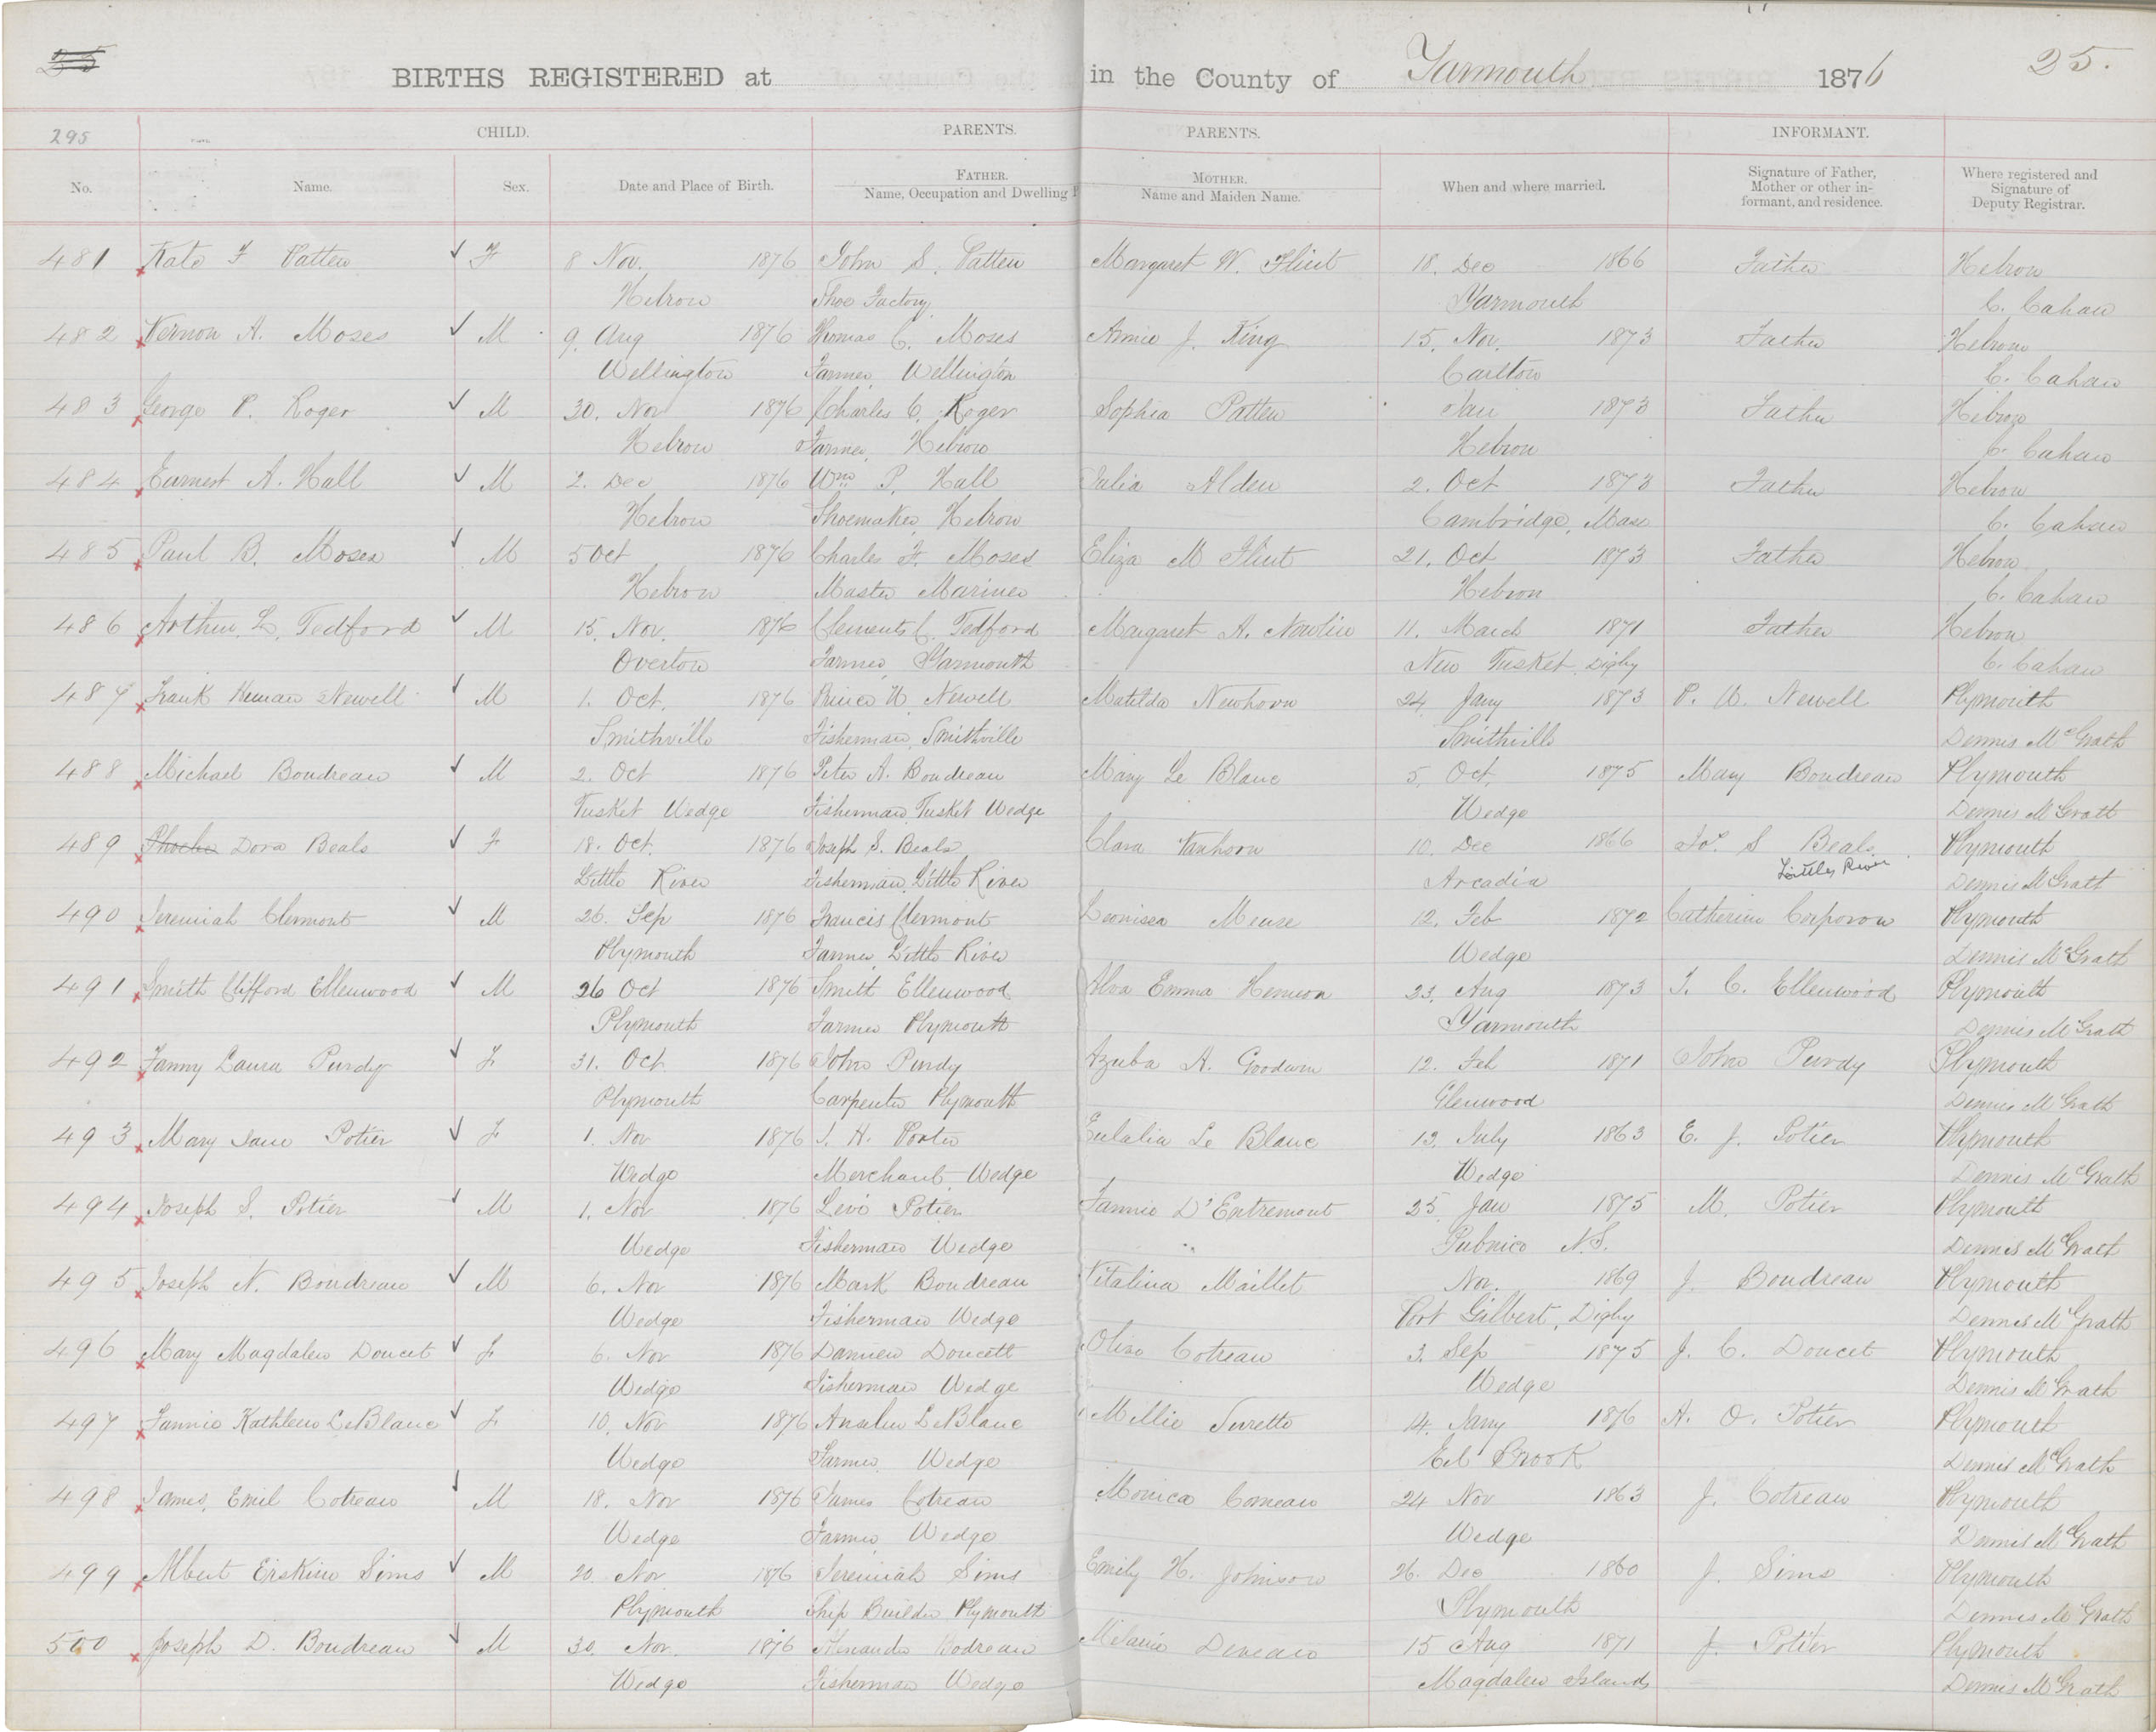 BIRTHS REGISTERED at in the County of Yarmouth 1876 25.
295
CHILD. PARENTS. PARENTS. INFORMANT.
No. Name. Sex. Date and Place of Birth. FATHER. Name, Occupation and Dwelling MOTHER. Name and Maiden Name. When and where married. Signature of Father, Mother or other informant, and residence. Where registered and Signature of Deputy Registrar.
481 Kate F Patten F 8 Nov. 1876 John S. Patten Margaret W. Flint 18. Dec 1866 Father Hebron
Hebron Shoe Factory Yarmouth C. Cahan
482 Vernon A. Moses M 9. Aug 1876 Thomas C. Moses Annie J. King 15. Nov. 1873 Father Hebron
Wellington Farmer, Wellington Carlton C. Cahan
483 George P. Roger M 30. Nov 1876 Charles C. Roger Sophia Patten Jan 1873 Father Hebron
Hebron Farmer, Hebron Hebron C. Cahan
484 Earnest A. Hall M 2. Dec 1876 Wm P. Hall Julia Alden 2. Oct 1873 Father Hebron
Hebron Shoemaker, Hebron Cambridge, Mass C. Cahan
485 Paul B. Moses M 5 Oct 1876 Charles F. Moses Eliza M Flint 21. Oct 1873 Father Hebron
Hebron Master Mariner Hebron C. Cahan
486 Arthur L. Tedford M 15. Nov. 1876 Clements C. Tedford Margaret A. Nowlin 11. March 1871 Father Hebron
Overton Farmer, Yarmouth New Tusket, Digby C. Cahan
487 Frank Heman Newell M 1. Oct. 1876 Prince W. Newell Matilda Newhorn 24. Jany 1873 P. W. Newell Plymouth
Smithville Fisherman, Smithville Smithville Dennis McGrath
488 Michael Boudreau M 2. Oct 1876 Peter A. Boudreau Mary Le Blanc 5. Oct. 1875 Mary Boudreau Plymouth
Tusket Wedge Fisherman, Tusket Wedge Wedge Dennis McGrath
489 Phoebe Dora Beals F 18. Oct. 1876 Joseph S. Beals Clara Vanhorn 10. Dec 1866 Jos. S Beals Plymouth
Little River Fisherman, Little River Arcadia Little River Dennis McGrath
490 Jeremiah Clermont M 26. Sep 1876 Francis Clermont Meuse 12. Feb 1872 Catherine Corporon Plymouth
Plymouth Farmer, Little River Wedge Dennis McGrath
491 Smith Clifford Ellenwood M 26 Oct 1876 Smith Ellenwood Alva Emma 23. Aug 1873 C. Ellenwood Plymouth
Plymouth Farmer Plymouth Yarmouth Dennis McGrath
492 Fanny Laura Purdy F 31. Oct 1876 John Purdy Azuba A. Goodwin 12. Feb 1871 John Purdy Plymouth
Plymouth Carpenter Plymouth Glenwood Dennis McGrath
493 Mary Jane Potier F 1. Nov 1876 J. H. Porter Eulalia Le Blanc 13. July 1863 E. J. Potier Plymouth
Wedge Merchant, Wedge Wedge Dennis McGrath
494 Joseph S. Potier M 1. Nov 1876 Levi Potier Fannie D'Entremont 25 Jan 1875 M. Potier Plymouth
Wedge Fisherman Wedge Pubnico N.S. Dennis McGrath
495 Joseph N. Boudreau M 6. Nov 1876 Mark Boudreau Vitalina Maillet Nov. 1869 J Boudreau Plymouth
Wedge Fisherman Wedge Port Gilbert, Digby Dennis McGrath
496 Mary Magdalen Doucet F 6. Nov 1876 Damien Doucett Olive Cotreau 3. Sep 1875 J. C. Doucet Plymouth
Wedge Fisherman Wedge Wedge Dennis McGrath
497 Fannie Kathleen LeBlanc F 10. Nov 1876 Anselm LeBlanc Millie Surette 14. Jany 1876 A. O. Potier Plymouth
Wedge Farmer Wedge Eel Brook Dennis McGrath
498 James Emil Cotreau M 18. Nov 1876 James Cotreau Monica Comeau 24 Nov 1863 J. Cotreau Plymouth
Wedge Farmer Wedge Wedge Dennis McGrath
499 Albert Erskine Sims M 20. Nov 1876 Jeremiah Sims Emily H. Johnson 26. Dec 1860 J. Sims Plymouth
Plymouth Ship Builder Plymouth Plymouth Dennis McGrath
500 Joseph D. Boudreau M 30. Nov. 1876 Alexander Bodreau Melanie Deveau 15 Aug 1871 J. Potier Plymouth
Wedge Fisherman Wedge Magdalen Islands Dennis McGrath